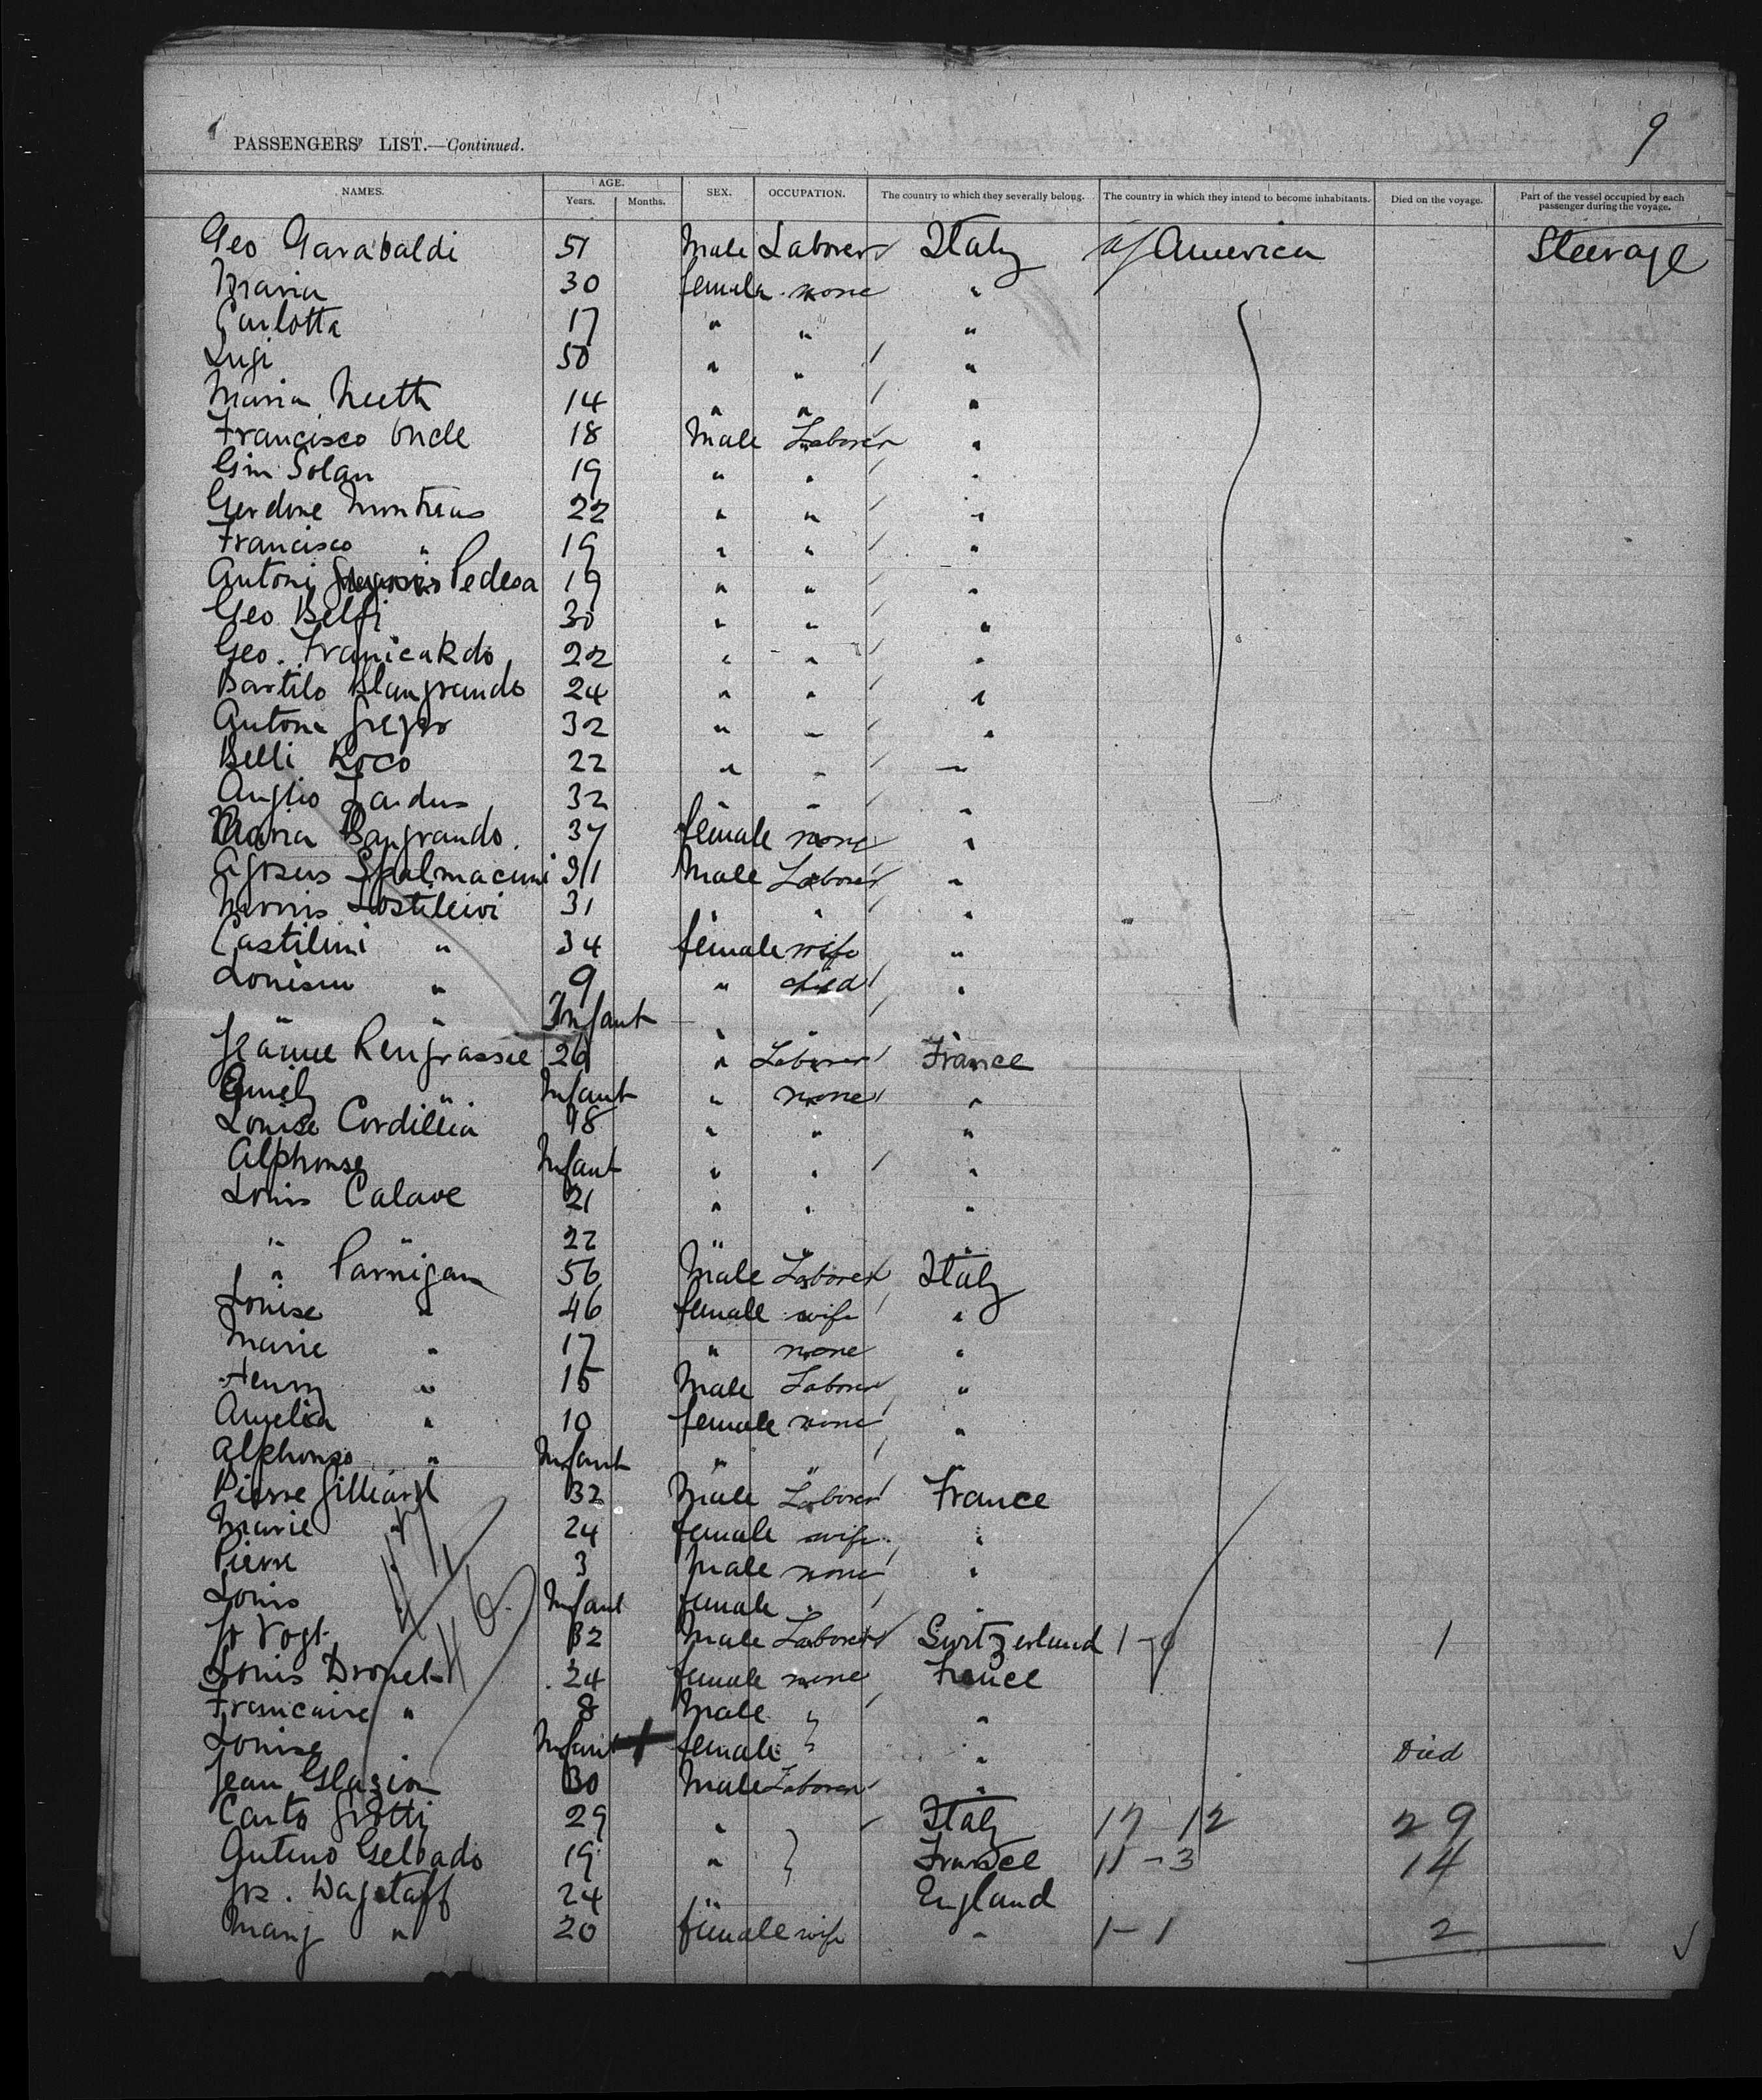 9
PASSENGERS' LIST.—Continued.
NAMES. AGE. Years. Months. SEX. OCCUPATION. The country to which they severally belong. The country in which they intend to become inhabitants. Died on the voyage. Part of the vessel occupied by each passenger during the voyage.
Geo Garabaldi 51 Male Laborer Italy of America Steerage
Maria 30 female none "
Carlotta 17 " " "
Luji 50 " " "
Maria 14 " " "
Francisco 18 Male Laborer "
Gim Solan 19 " " "
22 " " "
Francisco " 19 " " "
Antoni Pedesa 19 " " "
Geo Belfi 30 " " "
Geo. 22 " " "
Bartilo Blangrando 24 " " "
Antone 32 " " "
Belli Roco 22 " " "
Anglio 32 " " "
Maria Bangrando. 37 female none "
Spalmacini 31 Male Laborer "
31 " " "
Castilini " 34 female wife "
" 9 " child "
" Infant " " "
Jeanne Rengrassie 26 " Laborer France
" Infant " none "
Louise Cordillia 18 " " "
Alphonse Infant " " "
Louis Calave 21 " " "
" " 22 " " "
" Parnigan 56 Male Laborer Italy
Louise " 46 female wife "
Marie " 17 " none "
Henry " 15 Male Laborer "
Angelica " 10 female none "
Alphonso " Infant " " "
Pierre Gilliard 32 Male Laborer France
Marie " 24 female wife "
Pierre " 3 Male none "
Louis " Infant female " "
Vogt 32 Male Laborer Switzerland 1 1
Louis Dronet 24 female none France
Francaire " 8 Male " "
Louise Infant female " " Died
Jean Glazion 30 Male Laborer "
Carlo Grotti 29 " Italy 17-12 29
Antino Gelbado 19 " France 11-3 14
Jos. Wagstaff 24 " England
Mary " 20 female wife " 1-1 2